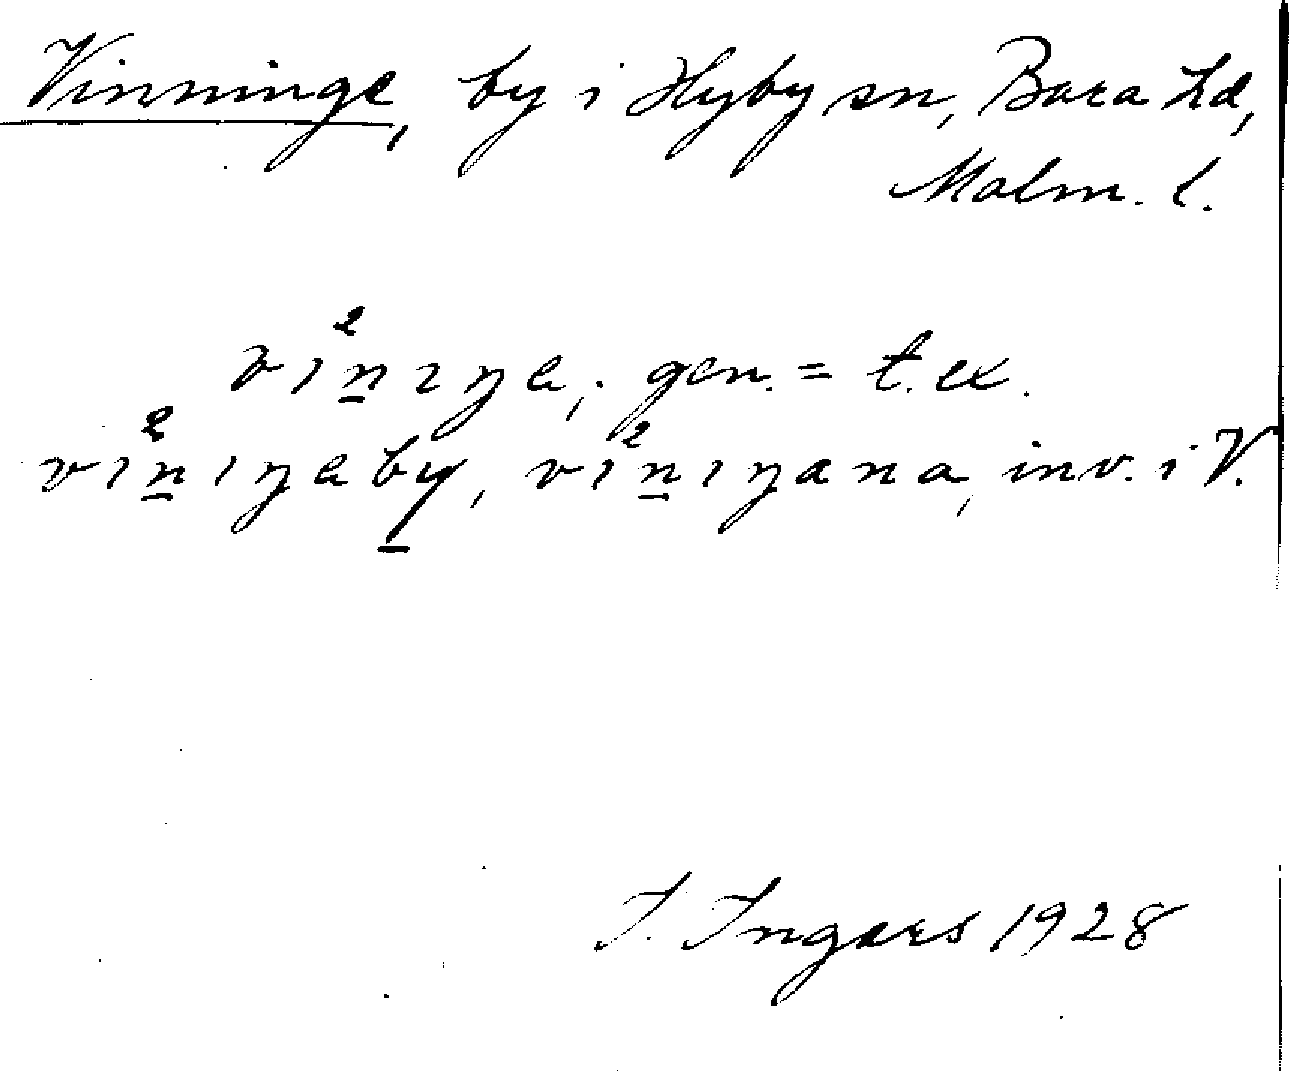 Vinninge, by i Hyby sn, Bara hd,
Malm. l.
vın̲²ıŋe; gen. = t.ex.
vın̲²ıŋeby̲, vın̲²ıŋana, inv. i V.
I. Ingers 1928